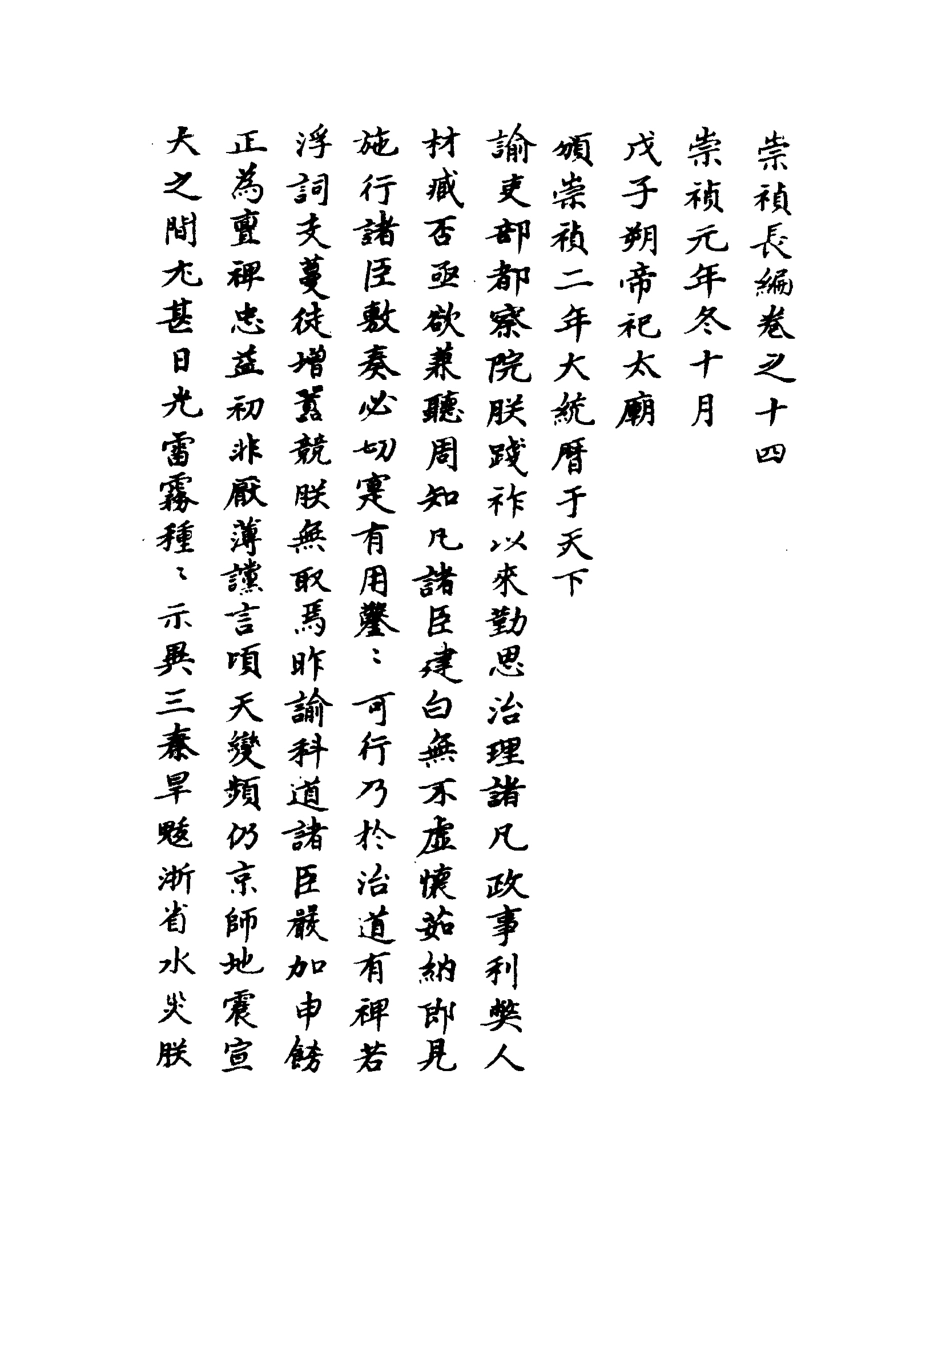 崇禎長編卷之十四
崇禎元年冬十月
戊子朔帝祀太廟
頒崇禎二年大統曆于天下
諭吏部都察院朕踐祚以來勤思治理諸凡政事利獘人
材臧否亟欲兼聽周知凡諸臣建白無不虛懷茹納即見
施行諸臣敷奏必切寔有用鑿〻可行乃於治道有裨若
浮詞支蔓徒增囂競朕無取焉昨諭科道諸臣嚴加申飭
正為亶裨忠益初非厭薄讜言頃天變頻仍京師地震宣
大之間尤甚日光雷霧種〻示異三秦旱魃浙省水災朕